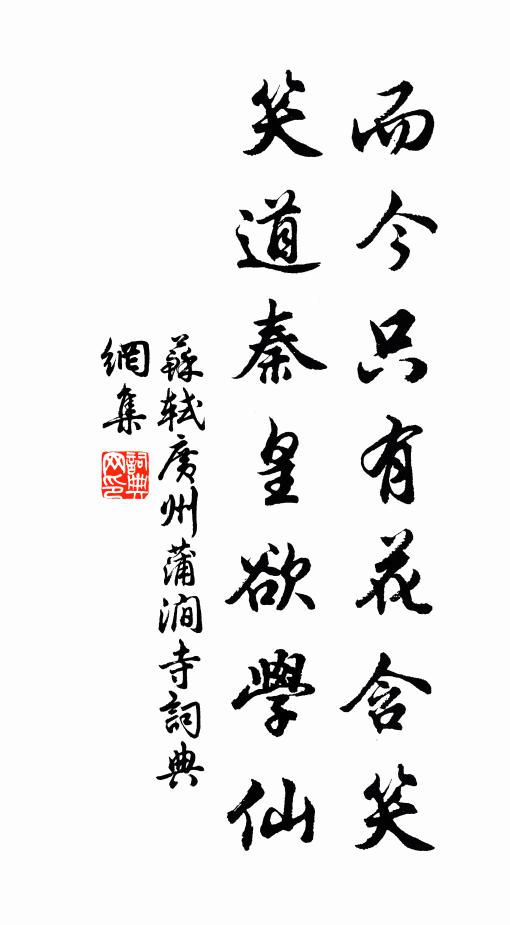 而今只有花含笑
笑道秦皇欲學仙
蘇軾廣州蒲澗寺詞典
網集
詞典
网印